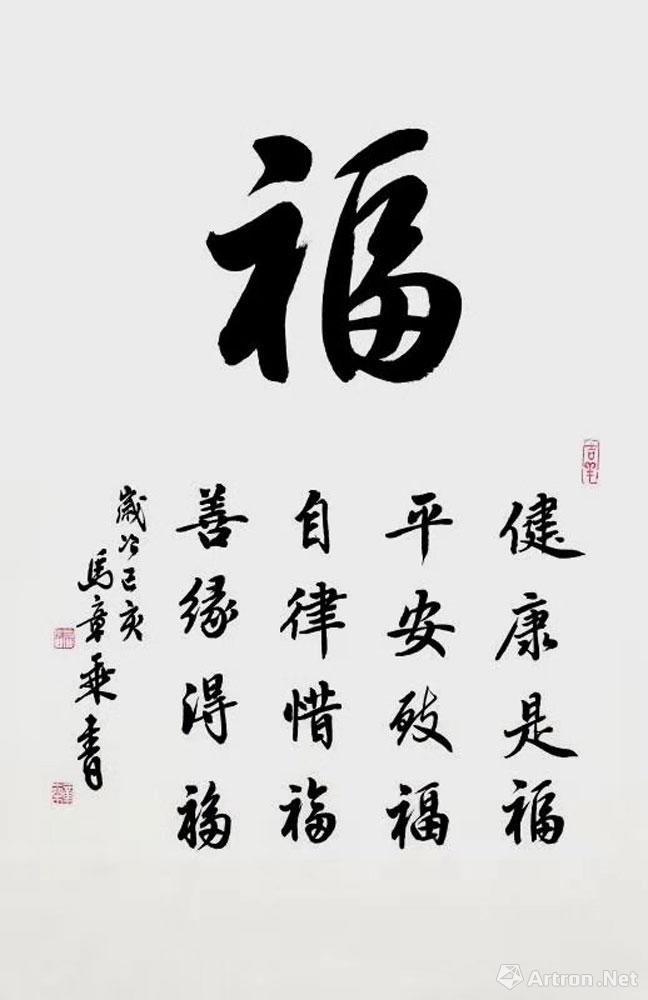 福
健康是福
平安致福
自律惜福
善缘得福
歲次己亥
馬章乘書
Artron.Net